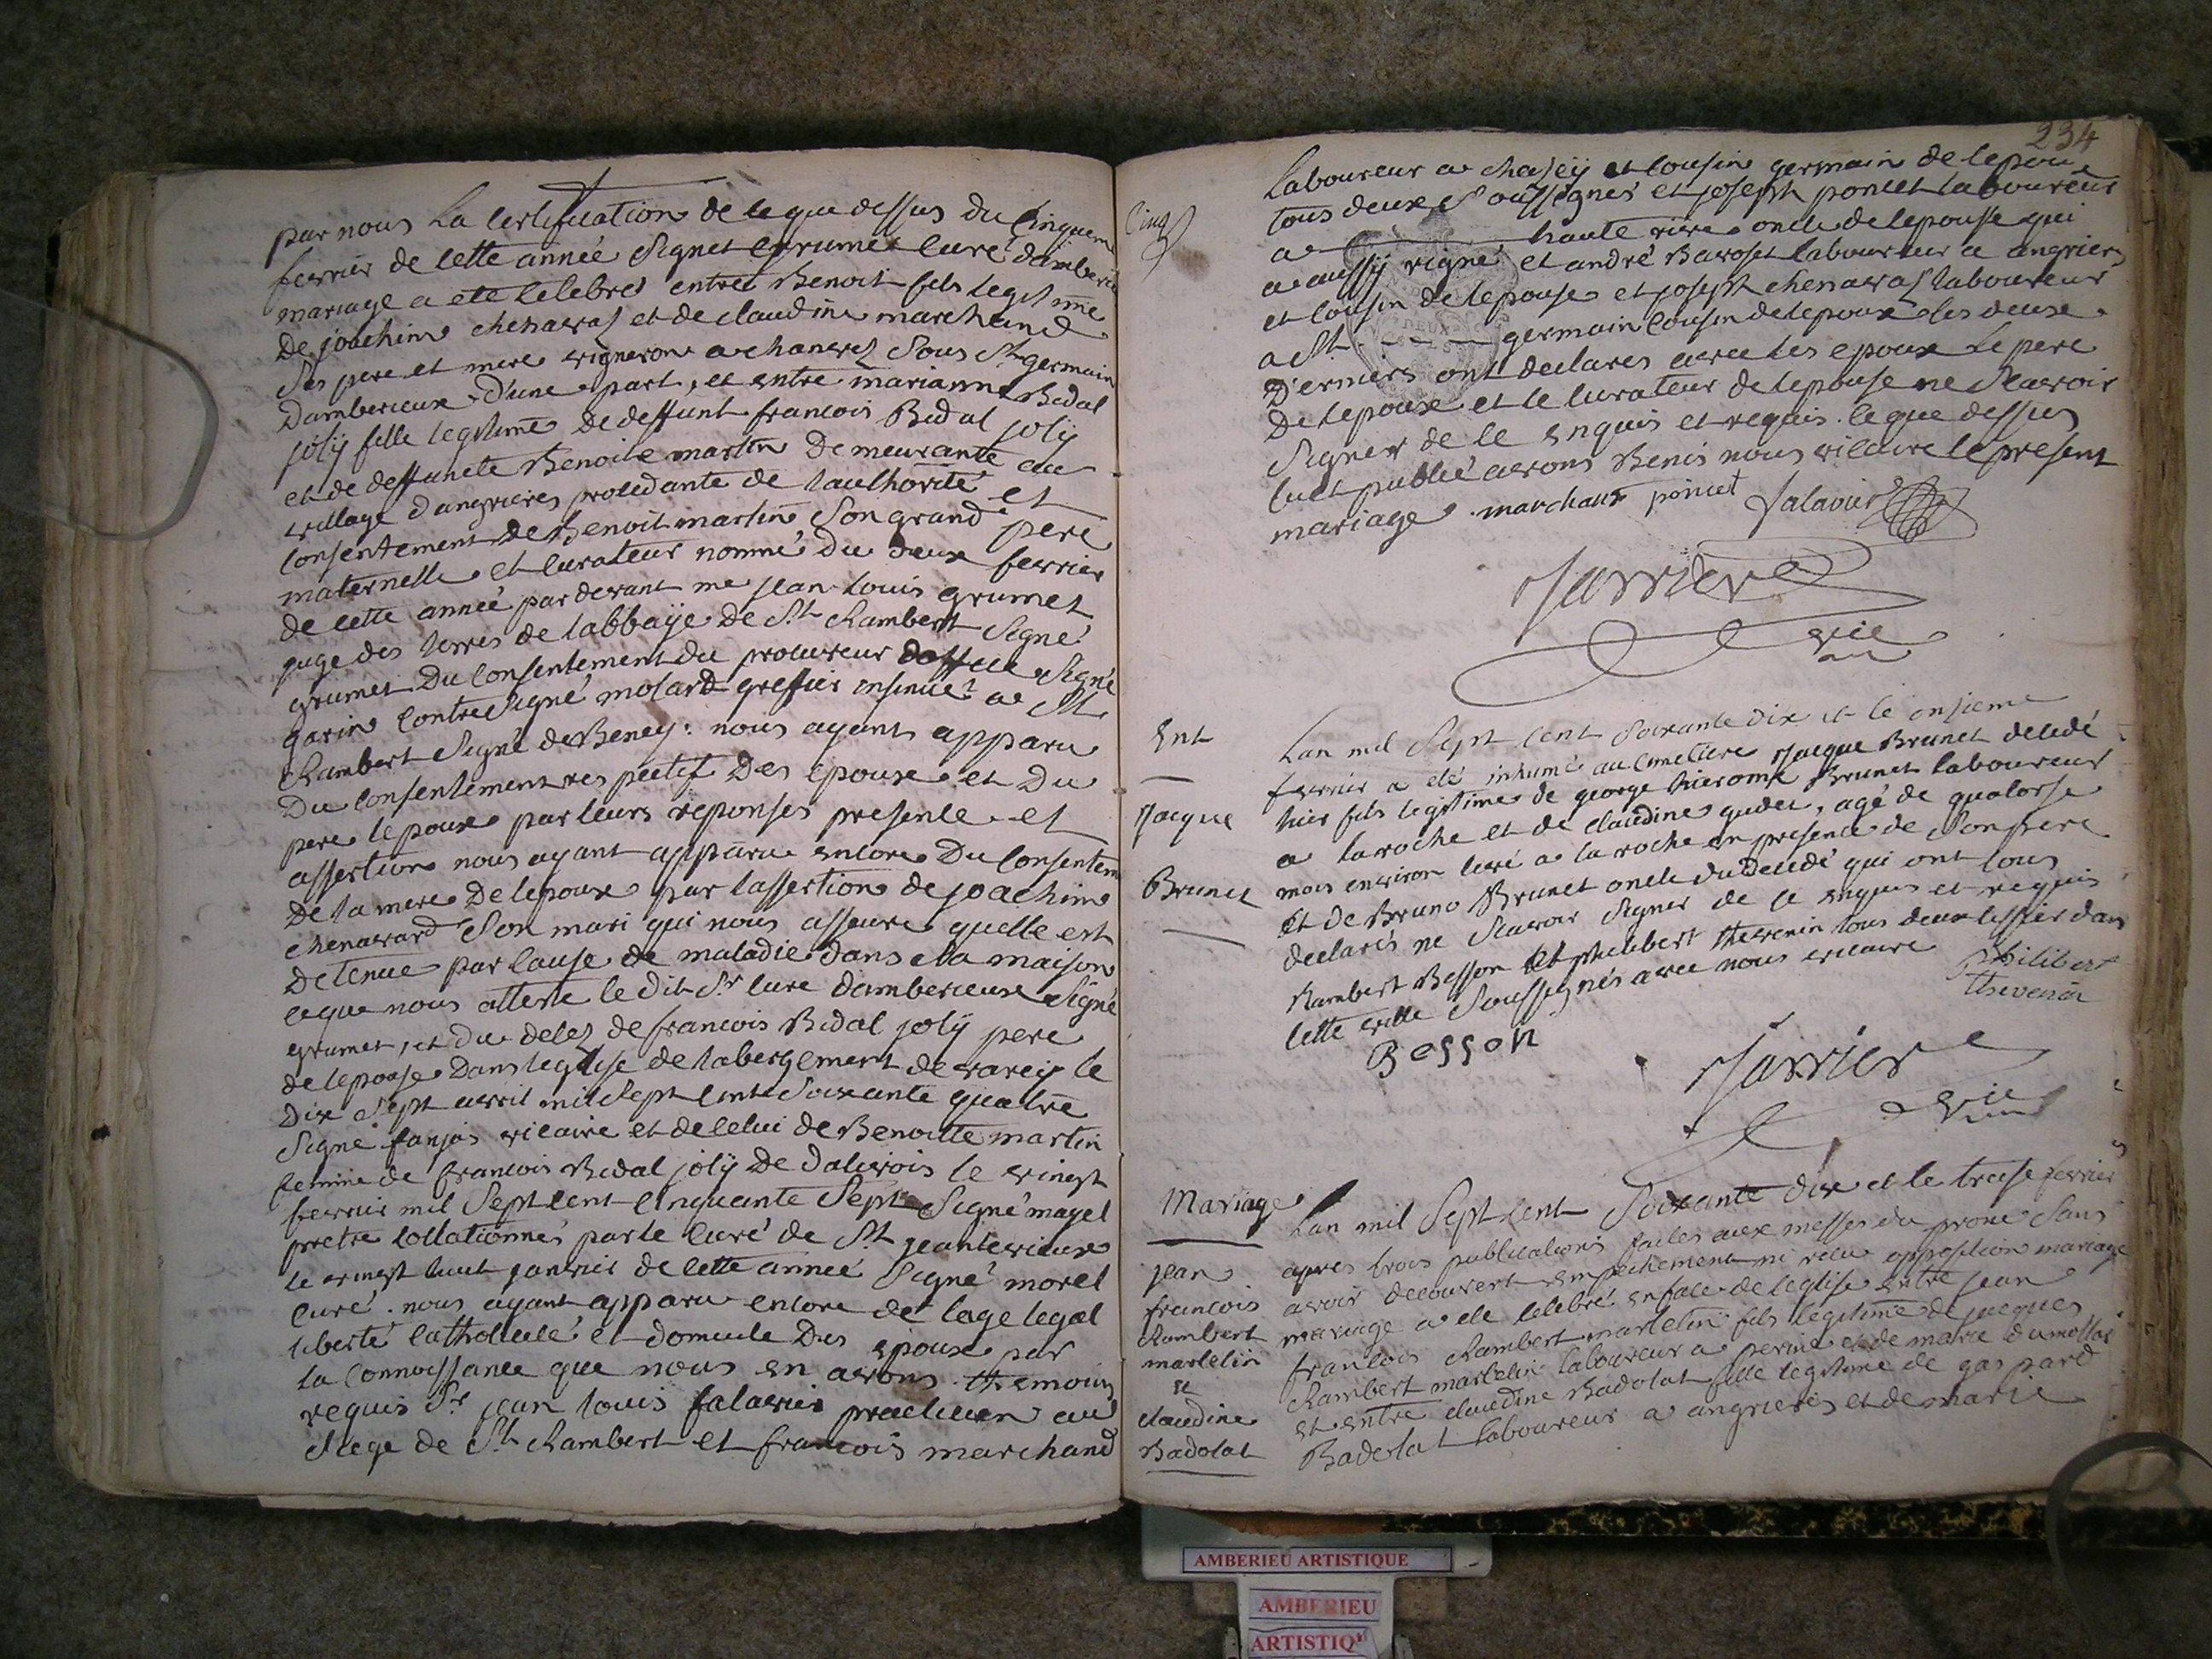 par nous la certification de ce que dessus du cinquieme
fevrier de cette année Signet grumet curé damberieux
mariage a eté celebré entre Benoit fils legitime
De joachim chenavaz et de claudine marchand
Ses pere et mere vigneron a chanvez Sous St germain
Damberieux D'une part, et entre marianne Bidal
jolÿ fille legitime de deffunt francois Bidal jolÿ
et de deffuncte Benoite martin Demeurante au
village d'angrieres procedante de l'authorité et
consentement de Benoit martin Son grand pere
maternelle et curateur nommé du deux fevrier
de cette année par devant me jean louis grumet
juge des terres de l'abbaÿe de St Rambert Signé
grumet Du consentement du procureur doffice Signé
garin contresigné molard greffier insinué a St
Rambert Signé de Beney: nous ayant apparu
Du consentement respectif Des epoux et Du
pere lepoux par leurs reponses presente et
assertion nous ayant apparu encore Du consentem
De la mere De lepoux par lassertion de joachim
chenavard Son mari qui nous asseure quelle est
Detenue par cause de maladie dans sa maison
ce que nous atteste le dit Sr cure damberieux Signé
grumet, et du delez de francois Bidal jolÿ pere
de lepouse Dans leglise de labergement de varey le
Dix Sept avril mil Sept cent Soixante quatre
Signé fanjas vicaire et de celui de Benoitte martin
femme de francois Bidal jolÿ De dalivois le vingt
fevrier mil Sept cent cinquante Sept Signé mayet
pretre collationnés par le curé de St jean le vieux
le vingt huit janvier de cette année Signé morel
curé. nous ayant apparu encore de lage legal
liberté catholicité et domicile Des epoux par
la connoissance que nous en avons. themoins
requis Sr jean louis falavier praticien au
Siege de St Rambert et francois marchand
234
cinq
Laboureur a chaseÿ et cousin germain de lepoux
tous deux Soussignés et joseph poncet laboureur
a haute rive oncle de lepouse qui
a aussÿ signé et andré Barozet laboureur a angrieres
et cousin de lepouse et joseph chenavaz laboureur
a St germain cousin de lepoux les deux
D'erniers ont declarés avec les epoux Le pere
De lepoux et le curateur de lepouse ne Scavoir
Signer de ce enquis et requis. ce que dessus
lu et publié avons Benis nous vicaire le present
mariage. marchant poncet falavier
Jarrier
vic
Ent
Jacque
Brunet
Lan mil Sept cent Soixante dix et le onzieme
fevrier a eté inhumé au cimetiere Jacque Brunet decedé
hier fils legitime de george hierome Brunet laboureur
a la roche et de claudine gudet, agé de quatorse
mois environ levé a la roche en presence de Son pere
et de Bruno Brunet oncle du decedé qui ont tous
declarés ne Scavoir Signer de ce enquis et requis
Rambert Besson et philibert thevenin tous deux tissier dans
cette ville Soussignés avec nous vicaire
Philibert
thevenin
Besson
Jarrier
vic
Mariage
jean
francois
Rambert
martelin
et
claudine
Badolat
Lan mil Sept cent Soixante dix et le treise fevrier
apres trois publications faites aux messes du prone Sans
avoir decouvert empechement ni recu opposition mariage
mariage a eté celebré en face de leglise entre jean
francois Rambert martelin fils legitime de jacques
Rambert martelin laboureur a et de marie dumollar
et entre claudine Badolat fille legitime de gaspard
Badolat laboureur a angrieres et de marie
AMBERIEU ARTISTIQUE
AMBERIEU
ARTISTIQ